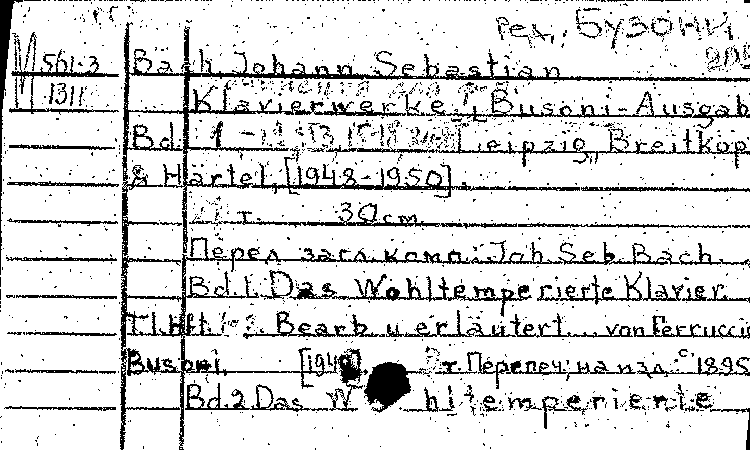 Ред. Бузони
M 561-3 Bach, Johann Sebastian
1311 Klavierwerke. Busoni-Ausgab
Bd. 1 - Leipzig, Breitkop
& Härtel, [1948-1950].
т. 30 cm.
Перед загл. комп.: Joh. Seb. Bach.
Bd. 1. Das Wohltemperierte Klavier.
Tl. Hft. 1-3. Bearb. u. erläutert... von Ferruccio
Busoni. т. Перепеч. на изд. с 1895
Bd. 2. Das W hltemperierte